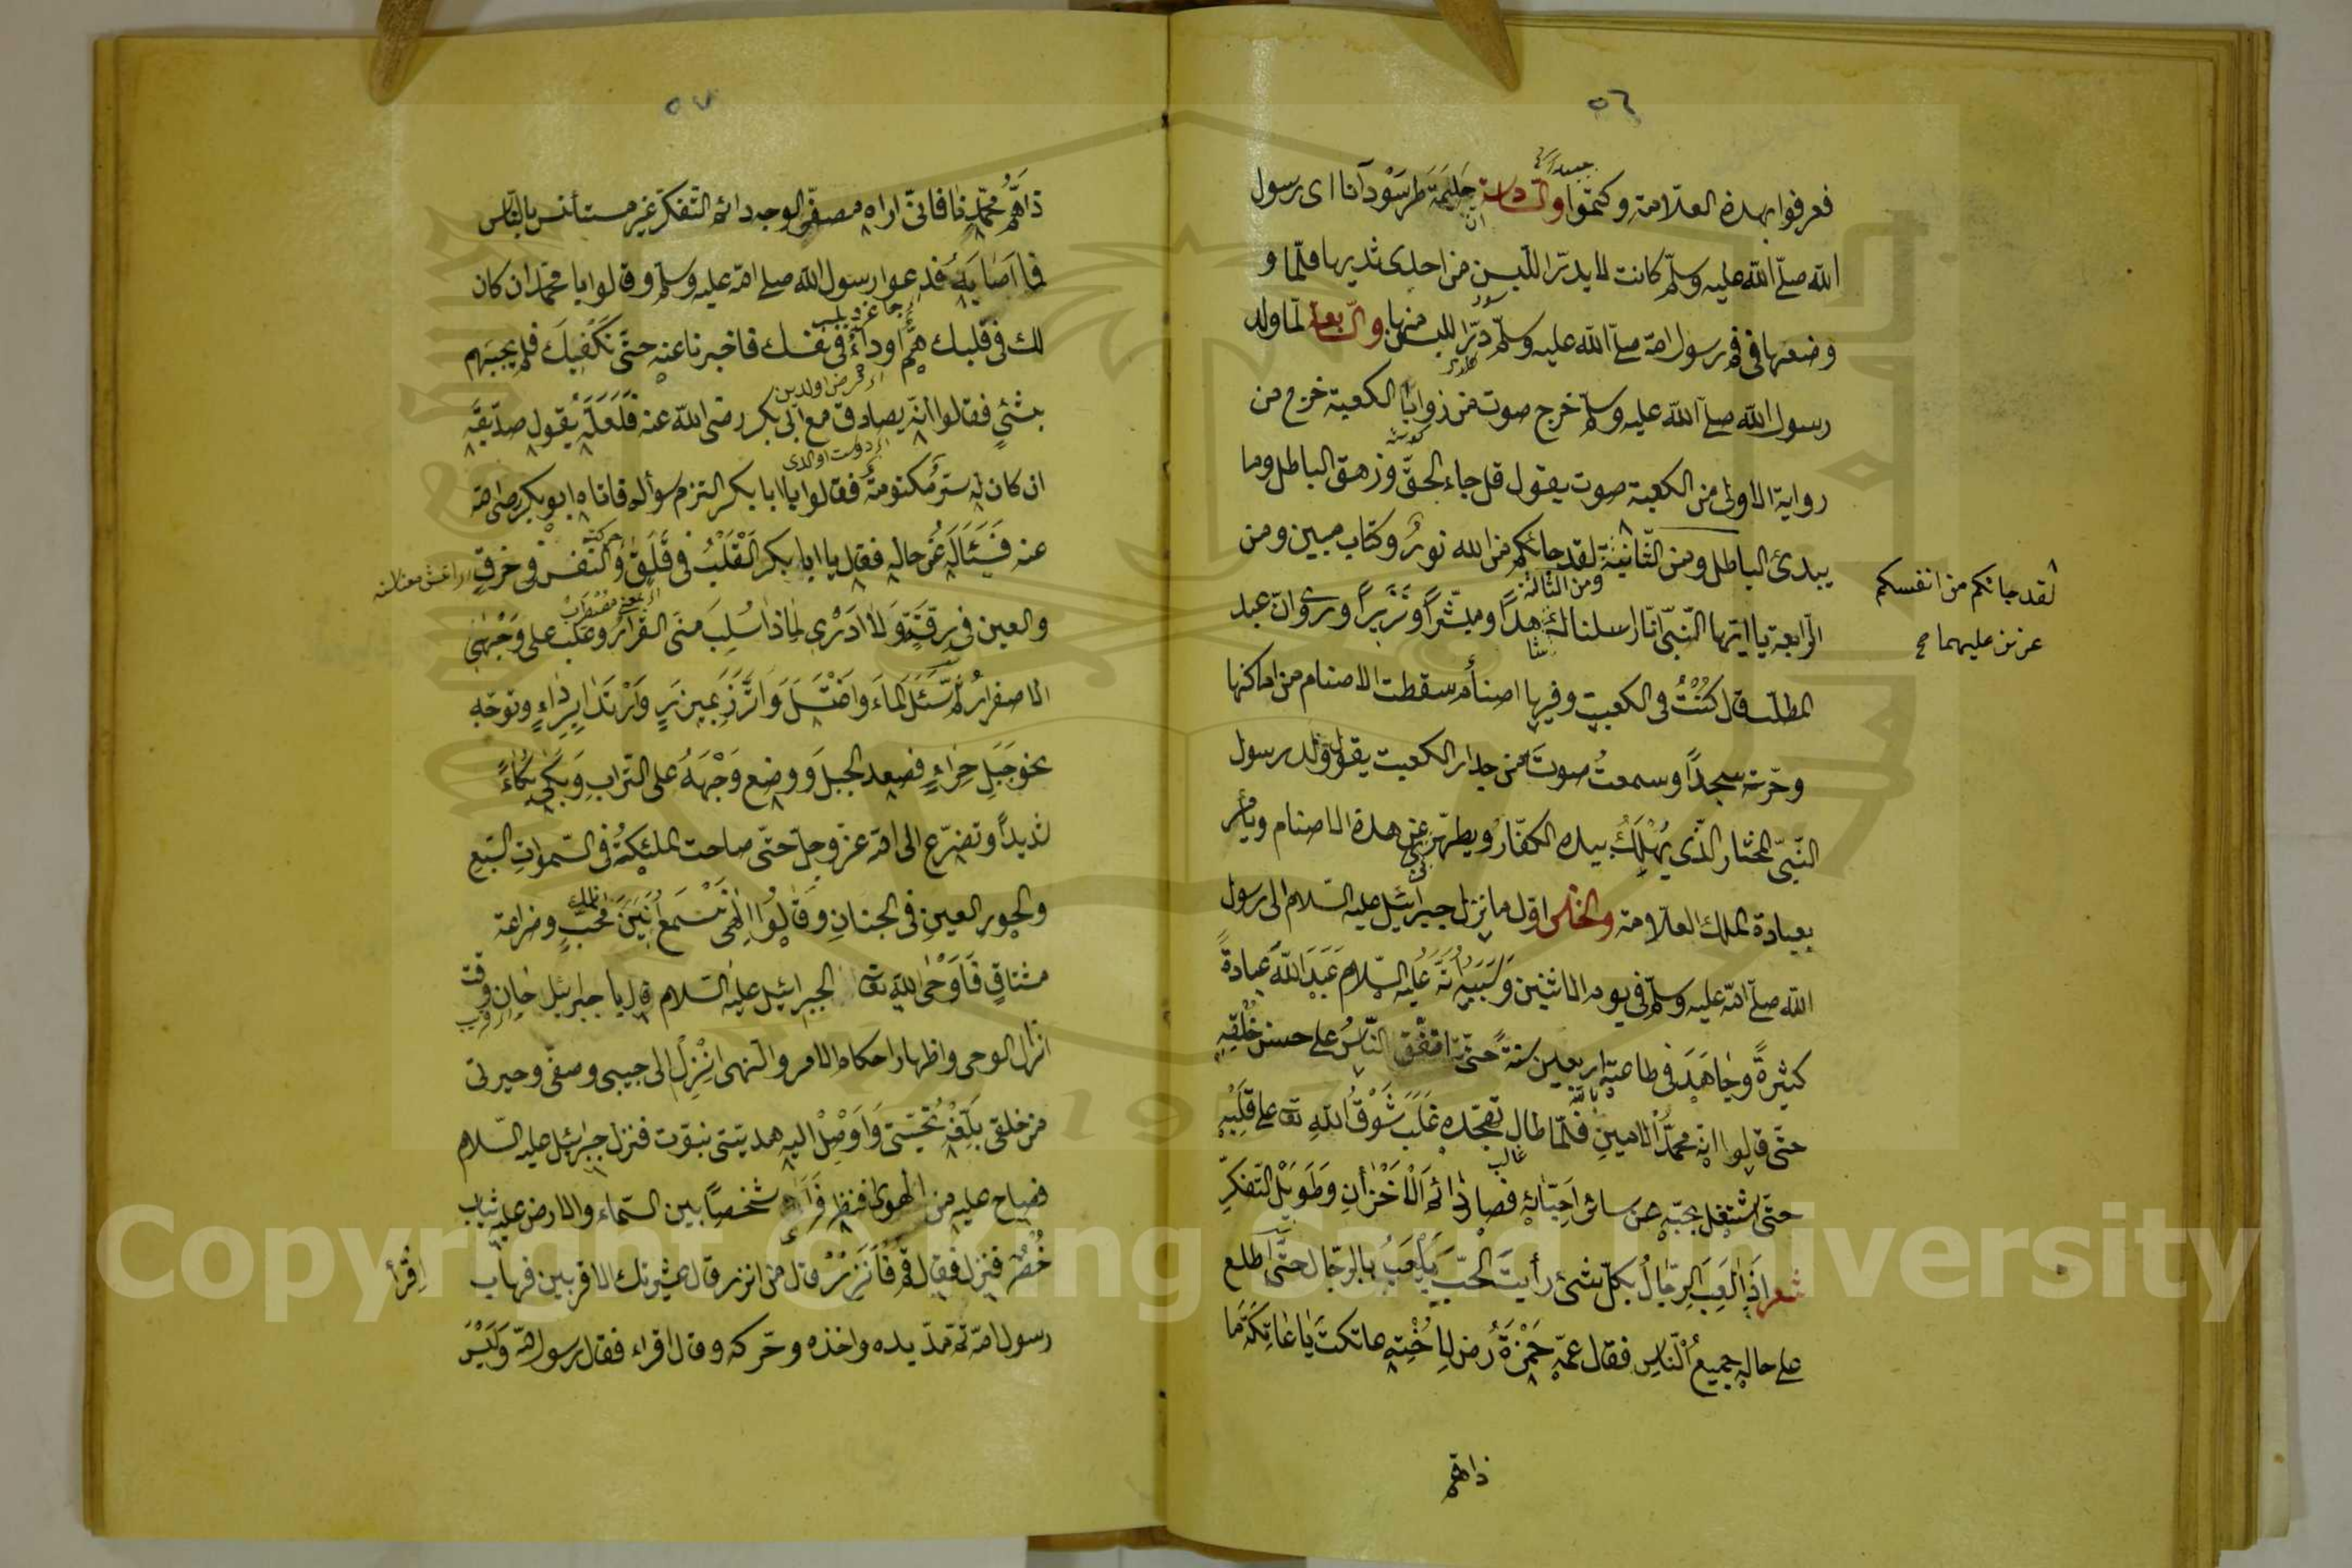 ٥٦
فعرفوا بهذه العلامة وكتموا والثالثة حليمة ظرسودانا اى رسول
الله صلّى الله عليه وسلّم كانت لا يدرّ اللبن من احدى ثديها فلمّا و
وضعها فى فم رسول الله صلّى الله عليه وسلّم درّ اللبن منها والرّابعة لمّا ولد
رسول الله صلّى الله عليه وسلّم خرج صوت من زوايا الكعبة خرج من
رواية الاولى من الكعبة صوت يقول قل جاء الحقّ وزهق الباطل وما
يبدئ الباطل ومن الثّانية لقد جائكم من الله نورٌ وكتاب مبين ومن
ومن الثالثة
لقد جائكم من انفسكم
عزيز عليه ما
الرّابعة يا ايّها النّبىّ انّا ارسلناك شاهدًا ومبشّرًا ونذيرًا وروى انّ عبد
المطلب قال كُنْتُ فى الكعبة وفيها اصنام سقطت الاصنام من اماكنها
وخرّت سجدًا وسمعتُ صوت من جدار الكعبة يقول ولد رسول
النّبىّ المختار الّذى يُهْلَكُ بيده الكفّار ويطهّر عن هذه الاصنام ويأمر
بعبادة الملك العلّام والخامس اوّل ما نزل جبرائيل عليه السّلام الى رسول
الله صلّى الله عليه وسلّم فى يوم الاثنين وَسَبَبُهُ انّهُ عليه السّلام عَبَدَ اللهَ عبادةً
كثيرةً وجَاهَدَ فى طاعته اربعين سنةً حتّى اتّفق النّاسُ على حسن خُلْقِهِ
حتّى قالوا انّه محمّدُ الامين فلمّا طال تهجّده غَلَبَ شَوْقُ اللهِ تع على قلبِهِ
غالب
حتّى اشتغل بحبّه عن سائر احبّائه فصار دائم الاحزان وطويل التّفكّر
شعر اذا لعب الرّجالُ بكلّ شئ رأيتَ الحبّ يلعبُ بالرّجال حتّى اطلع
على حاله جميعُ النّاسِ فقال عمّه حمزةُ رض لاُخْتِهِ عاتكت يا عاتكة ما
ذاهمّ
٥٧
ذاهمُّ محمّدٍ فانّى اراه مصفرّ الوجه دائم التّفكر غير مستأنس بالنّاس
فما اصابه فدعوا رسول الله صلى الله عليه وسلّم وقالوا يا محمّد ان كان
لك فى قلبك همٌّ اوداءٌ فى نفسك فاخبرنا عنه حتّى نكفيك فلم يجبهم
بشئٍ فقالوا انّه يصادق مع ابى بكر رضى الله عنه فلعلّه يقول صدّيقه
ان كان له سرٌّ مكتومةٌ فقالوا يا ابا بكر التزم سؤاله فاتاه ابو بكر رضى الله
عنه فسئاله عن حاله فقال يا ابا بكر القلبُ فى قَلَقٍ والنّفس فى حرقٍ
والعين فى رقّةٍ ولا ادرى لماذا سُلِبَ منّى القرارُ وغلب على وجهى
الاصفرارُ ثمّ سئل الماء واغتسل واتّزر بميزرٍ وارتدا برداءٍ وتوجّه
نحو جبل حراءٍ فصعد الجبل و وضع وجهه على التّراب وبكى بكاءً
شديدًا وتضرّع الى الله عزّ وجلّ حتّى صاحت الملئكةُ فى السّموات السّبع
والحور العينِ فى الجنانِ وقالوا الهى نسمع انين محبٍّ وضراعة
مشتاقٍ فاوحى الله تع الى جبرائيل عليه السّلام قال يا جبرئيل حان وقت
انزال الوحى واظهار احكام الامر والنهى انزل الى حبيبى وصفيّى وخيرتى
من خلقى بلّغه تحيّتى واوصل اليه هديّتى نبوّت فنزل جبرئيل عليه السّلام
فصاح عليه من الهوا فنظر فرأى شخصًا بين السّماء والارض عليه ثياب
خُضْر فنزل فقال قم فانذر قال من انذر قال عشيرتك الاقربين فهاب
اِقْرأ
رسول الله ثم مدّ يده واخذه وحرّكه وقال اقراء فقال رسول الله وليس
Copyright © King Saud University
1957